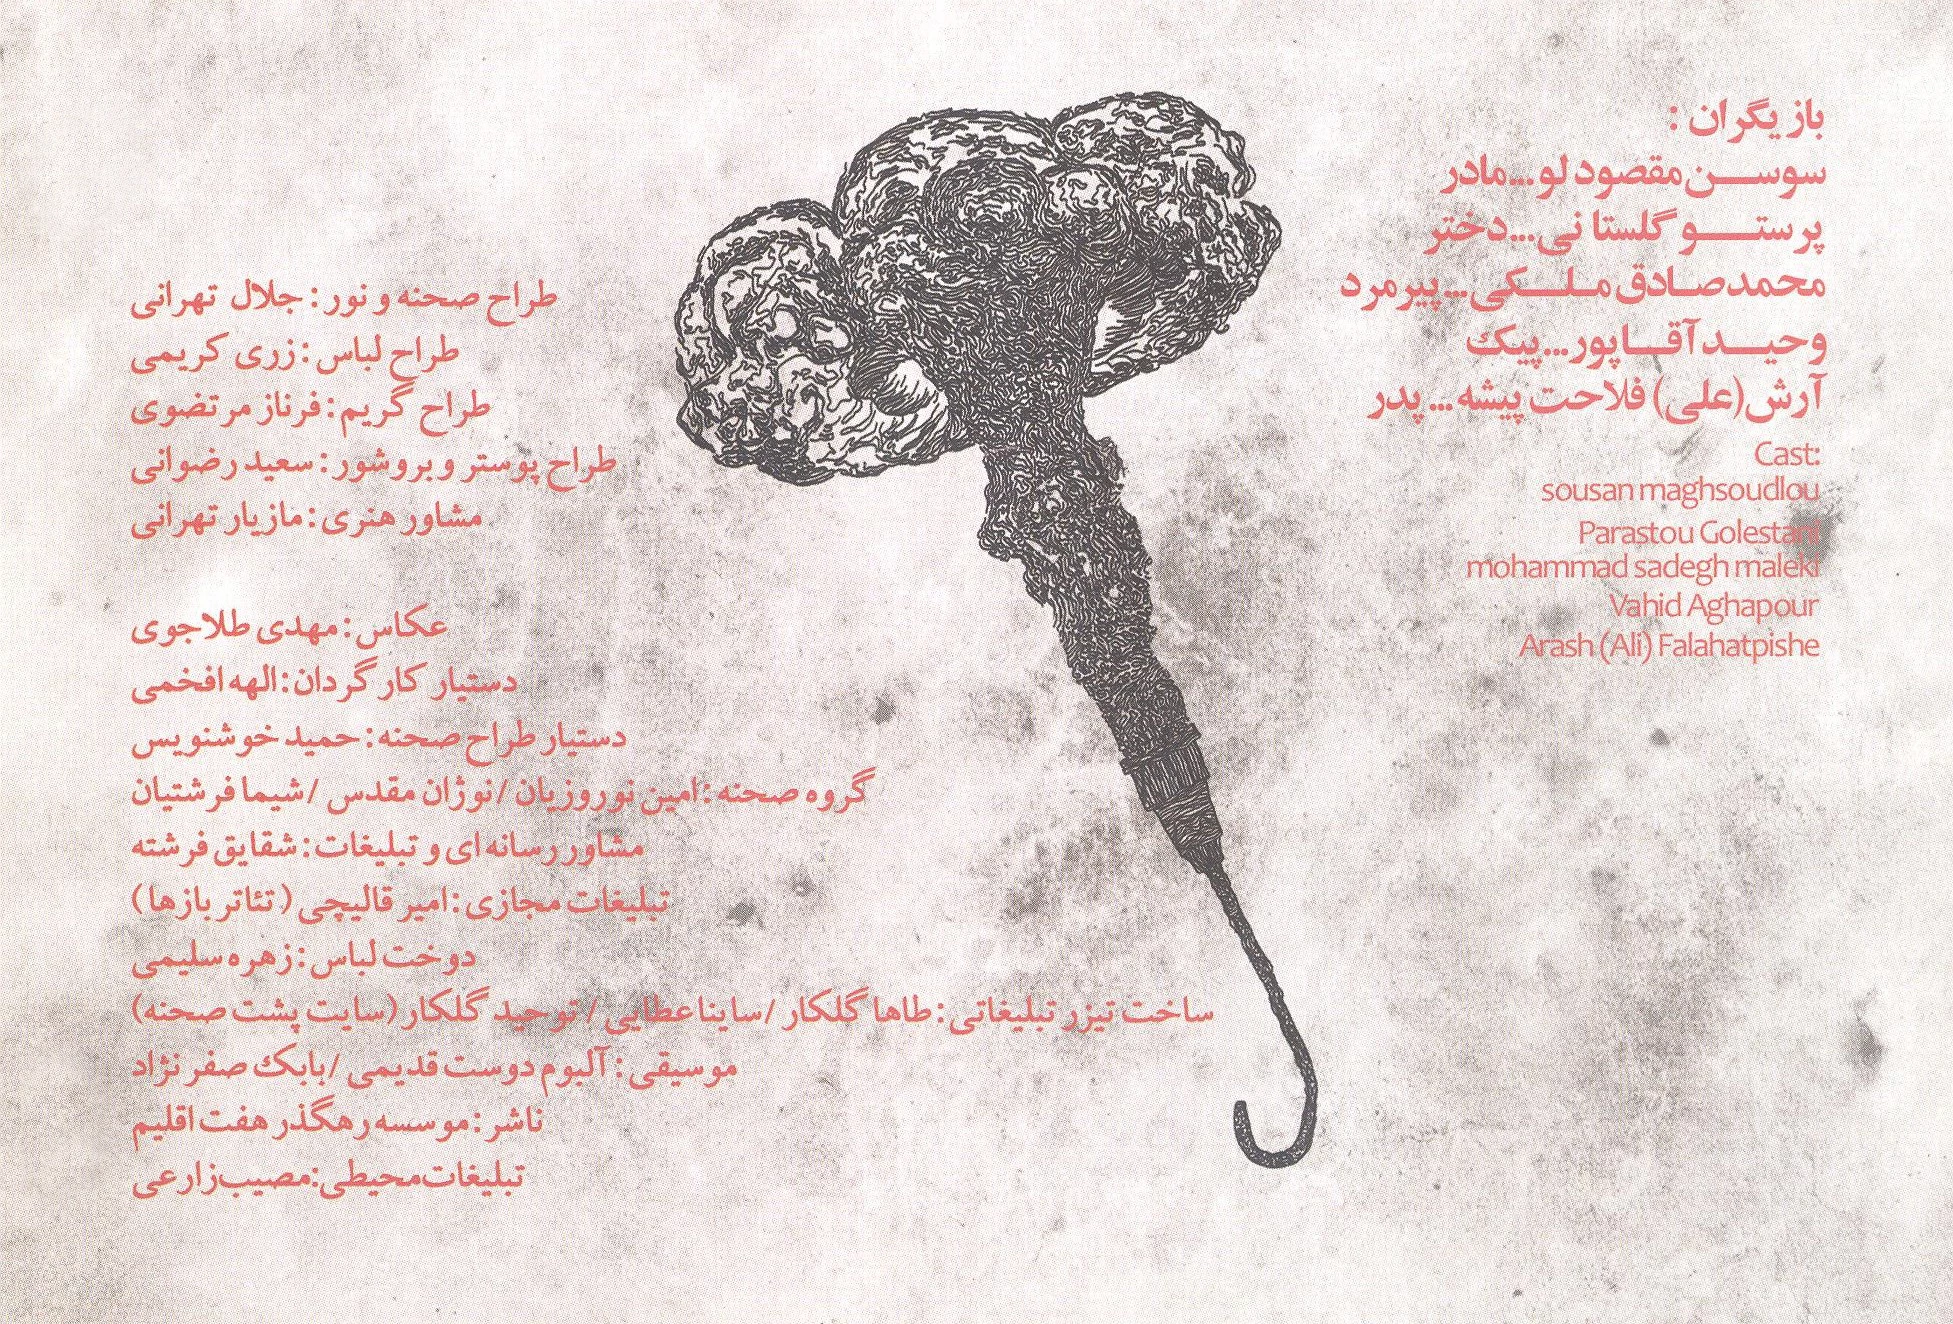 بازیگران :
سوسن مقصودلو...مادر
پرستو گلستانی...دختر
محمدصادق ملکی...پیرمرد
وحید آقاپور...پیک
آرش(علی) فلاحت پیشه...پدر
Cast:
sousan maghsoudlou
Parastou Golestani
mohammad sadegh maleki
Vahid Aghapour
Arash (Ali) Falahatpishe
طراح صحنه و نور : جلال تهرانی
طراح لباس : زری کریمی
طراح گریم : فرناز مرتضوی
طراح پوستر و بروشور : سعید رضوانی
مشاور هنری : مازیار تهرانی
عکاس : مهدی طلاجوی
دستیار کارگردان : الهه افخمی
دستیار طراح صحنه : حمید خوشنویس
گروه صحنه : امین نوروزیان / نوژان مقدس / شیما فرشتیان
مشاور رسانه ای و تبلیغات : شقایق فرشته
تبلیغات مجازی : امیر قالیچی ( تئاتر بازها )
دوخت لباس : زهره سلیمی
ساخت تیزر تبلیغاتی : طاها گلکار / ساینا عطایی / توحید گلکار (سایت پشت صحنه)
موسیقی : آلبوم دوست قدیمی / بابک صفرنژاد
ناشر : موسسه رهگذر هفت اقلیم
تبلیغات محیطی : مصیب زارعی